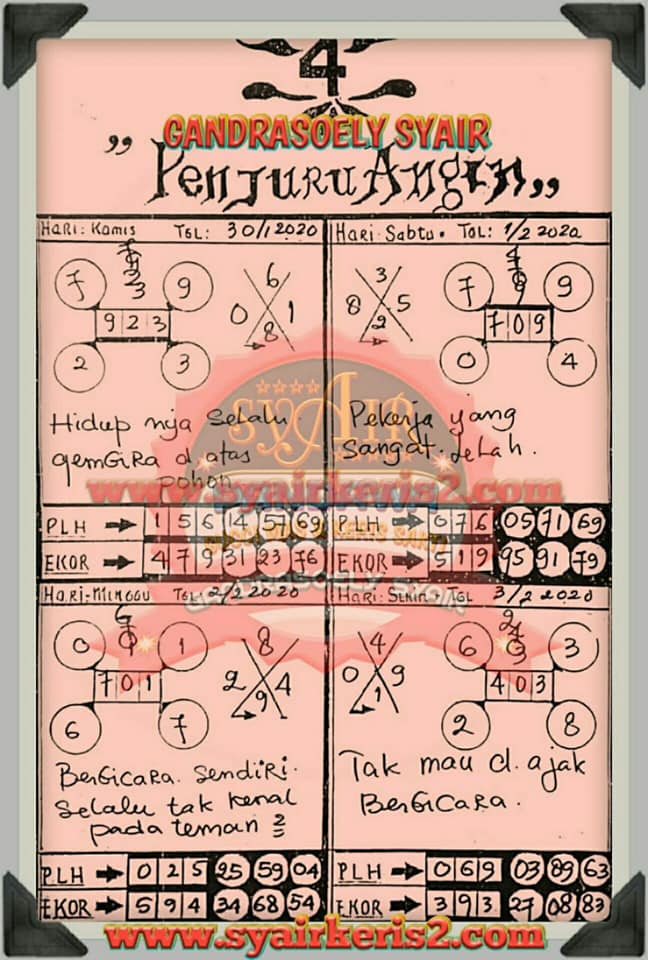 4
GANDRASOELY SYAIR
,, Penjuru Angin ,,
HaRi: Kamis TGL: 30/1 2020
7 9
9 2 3
2 3
6
0 1
8
Hidup nya selalu
gemGiRa di atas
pohon
PLH → 1 5 6 14 57 69
EKOR → 4 7 9 31 23 76
HaRi: Sabtu. TGL: 1/2 2020
3
8 5
2
7 9
7 0 9
0 4
Pekerja yang
Sangat. Lelah.
PLH → 0 7 6 05 71 69
EKOR → 5 1 9 95 91 79
SYAIR
www.syairkeris2.com
GANDRASOELY SYAIR
HaRi: Minggu TGL 2/2 2020
0 1
7 0 1
6 7
8
2 4
9
BerGicaRa. Sendiri.
Selalu tak kenal
pada teman 2
PLH → 0 2 5 25 59 04
EKOR → 5 9 4 34 68 54
HaRi: Senin TGL 3/2 2020
4
0 9
1
6 3
4 0 3
2 8
Tak mau di. ajak
BerGicaRa.
PLH → 0 6 9 03 89 63
EKOR → 3 9 3 27 08 83
www.syairkeris2.com